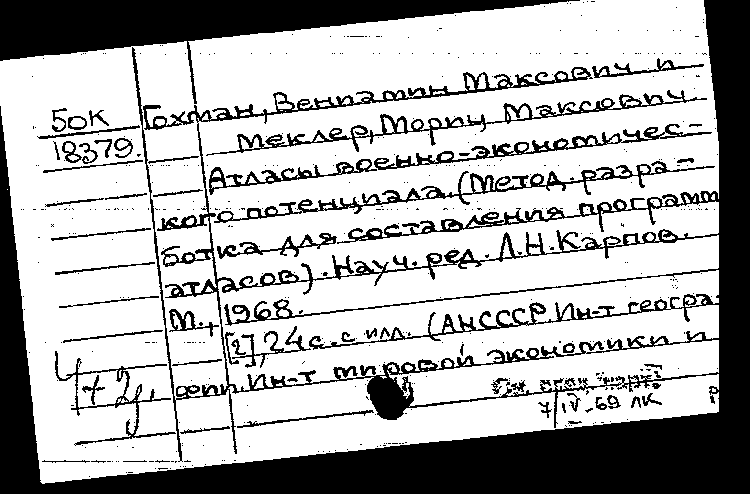 50К
18379.
Гохман, Вениамин Максович и
Меклер, Мориц Максович
Атласы военно-экономичес-
кого потенциала. (Метод. разра-
ботка для составления программ
атласов). Науч. ред. Л.Н. Карпов.
М., 1968.
[2], 24 с. с илл. (АН СССР. Ин-т геогра-
фии. Ин-т мировой экономики и
4+2д.
См. прод. карт.
7/IV-69 ЛК